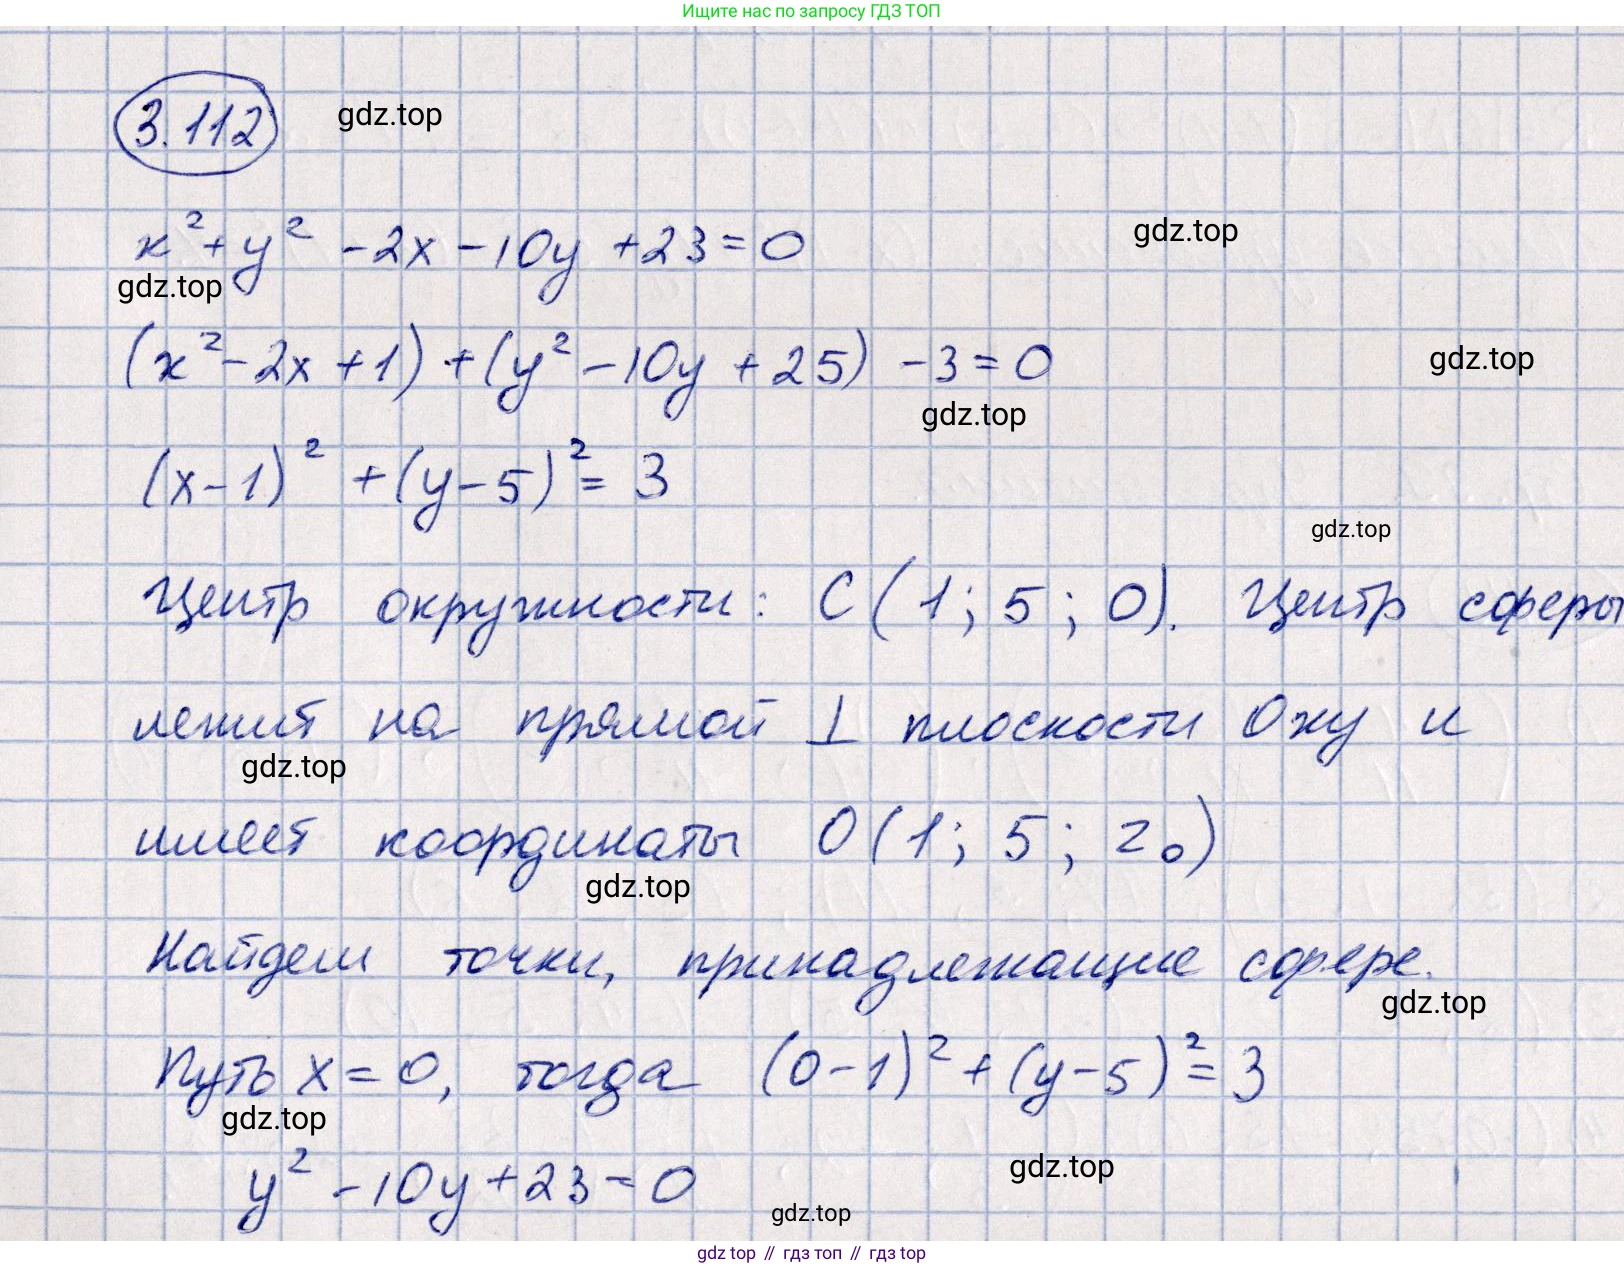 Ищите нас по запросу ГДЗ ТОП
3.112 gdz.top
x² + y² - 2x - 10y + 23 = 0 gdz.top
gdz.top
(x² - 2x + 1) + (y² - 10y + 25) - 3 = 0 gdz.top
gdz.top
(x - 1)² + (y - 5)² = 3
gdz.top
Центр окружности: C (1; 5; 0). Центр сферы
лежит на прямой ⊥ плоскости Oxy и
gdz.top
имеет координаты O (1; 5; z₀)
gdz.top
Найдем точки, принадлежащие сфере.
gdz.top
Путь x = 0, тогда (0 - 1)² + (y - 5)² = 3
gdz.top
y² - 10y + 23 = 0 gdz.top
gdz.top
gdz top // гдз топ // гдз top